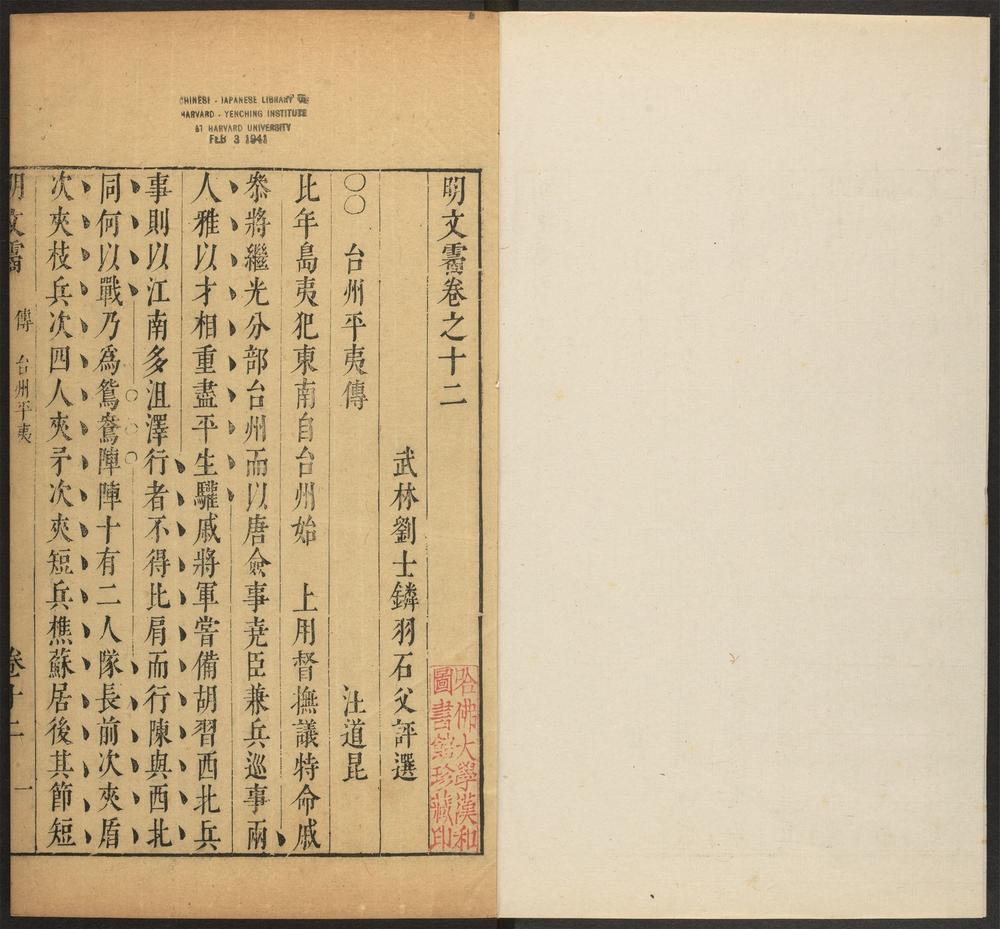 CHINESE - JAPANESE LIBRARY OF
HARVARD - YENCHING INSTITUTE
AT HARVARD UNIVERSITY
FEB 3 1941
明文霱卷之十二
武林劉士鏻羽石父評選
○○ 台州平夷傳 汪道昆
比年島夷犯東南自台州始 上用督撫議特命戚
叅將繼光分部台州而以唐僉事堯臣兼兵巡事兩
人雅以才相重盡平生驩戚將軍嘗備胡習西北兵
事則以江南多沮澤行者不得比肩而行陳與西北
同何以戰乃爲鴛鴦陣陣十有二人隊長前次夾盾
次夾枝兵次四人夾矛次夾短兵樵蘇居後其節短
明文霱 傳 台州平夷 卷十二 一
哈佛大學漢和
圖書館珍藏印